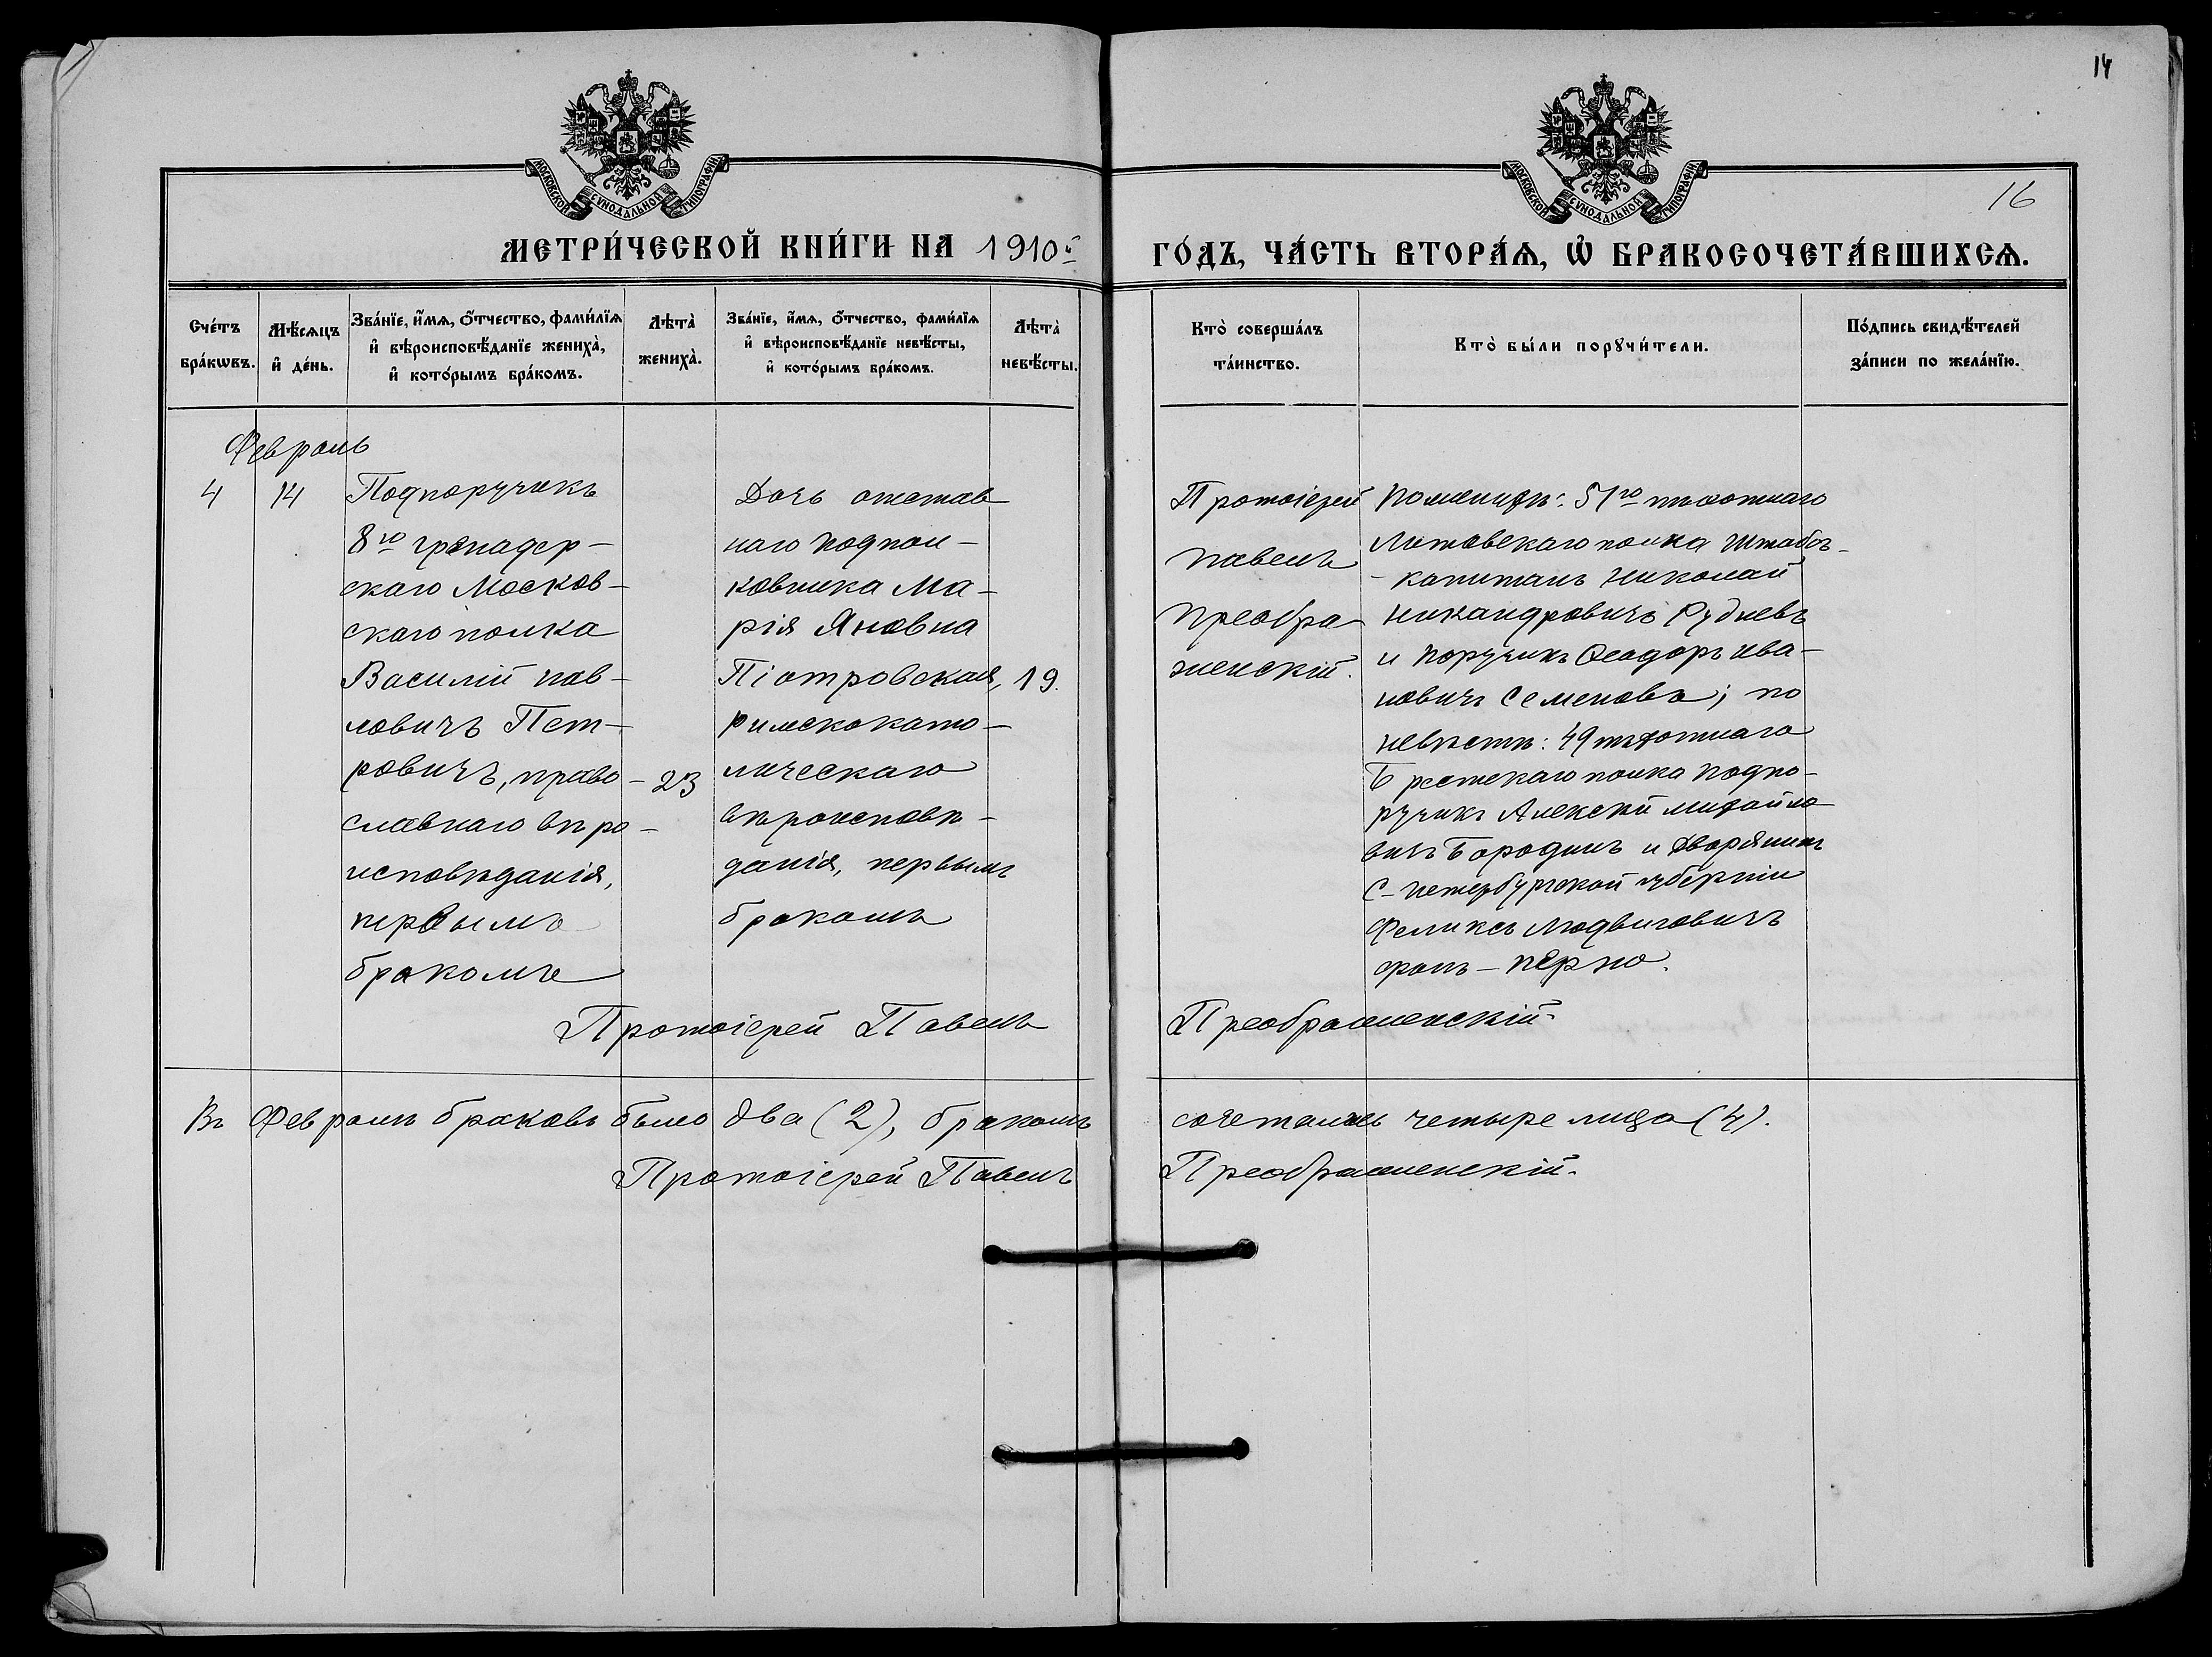 14
МОСКОВСКОЙ СѴНОДАЛЬНОЙ ТИПОГРАФІИ
МОСКОВСКОЙ СѴНОДАЛЬНОЙ ТИПОГРАФІИ
16
МЕТРИ́ЧЕСКОЙ КНИ́ГИ НА 1910й
ГО́ДЪ, ЧА́СТЬ ВТОРА́Ѧ, Ѽ БРАКОСОЧЕТА́ВШИХСѦ.
Сче́тъ
бра́кѡвъ.
Мѣ́сѧцъ
и҆ де́нь.
Зва́нїе, и҆́мѧ, ѻ҆́тчество, фами́лїѧ
и҆ вѣроисповѣ́данїе жениха̀,
и҆ кото́рымъ бра́комъ.
Лѣта̀
жениха̀.
Зва́нїе, и҆́мѧ, ѻ҆́тчество, фами́лїѧ
и҆ вѣроисповѣ́данїе невѣ́сты,
и҆ кото́рымъ бра́комъ.
Лѣта̀
невѣ́сты.
Кто̀ соверша́лъ
та́инство.
Кто̀ бы́ли порꙋчи́тели.
По́дпись свидѣ́телей
за́писи по жела́нїю.
Февраль
4
14
Подпоручикъ
8го гренадер-
скаго Москов-
скаго полка
Василій Пав-
ловичъ Пет-
ровичъ, право-
славнаго вѣро-
исповѣданія,
первымъ
бракомъ
23
Дочь отстав
наго подпол-
ковника Ма-
рія Яновна
Піотровская,
римскокато-
лическаго
вѣроисповѣ-
данія, первымъ
бракомъ
19.
Протоіерей
Павелъ
Преобра-
женскій.
По женихѣ: 51го пѣхотнаго
Литовскаго полка Штабсъ-
-капитанъ Николай
Никандровичъ Рудневъ
и поручикъ Ѳеодоръ Ива-
новичъ Семеновъ; по
невѣстѣ: 49 пѣхотнаго
Брестскаго полка подпо-
ручикъ Алексѣй Михайло
вичъ Бородинъ и дворянинъ
С-Петербургской губерніи
Феликсъ Людвиговичъ
фонъ-Перно.
Протоіерей Павелъ Преображенскій.
Въ Февралѣ браковъ было два (2), бракомъ сочетались четыре лица (4).
Протоіерей Павелъ Преображенскій.